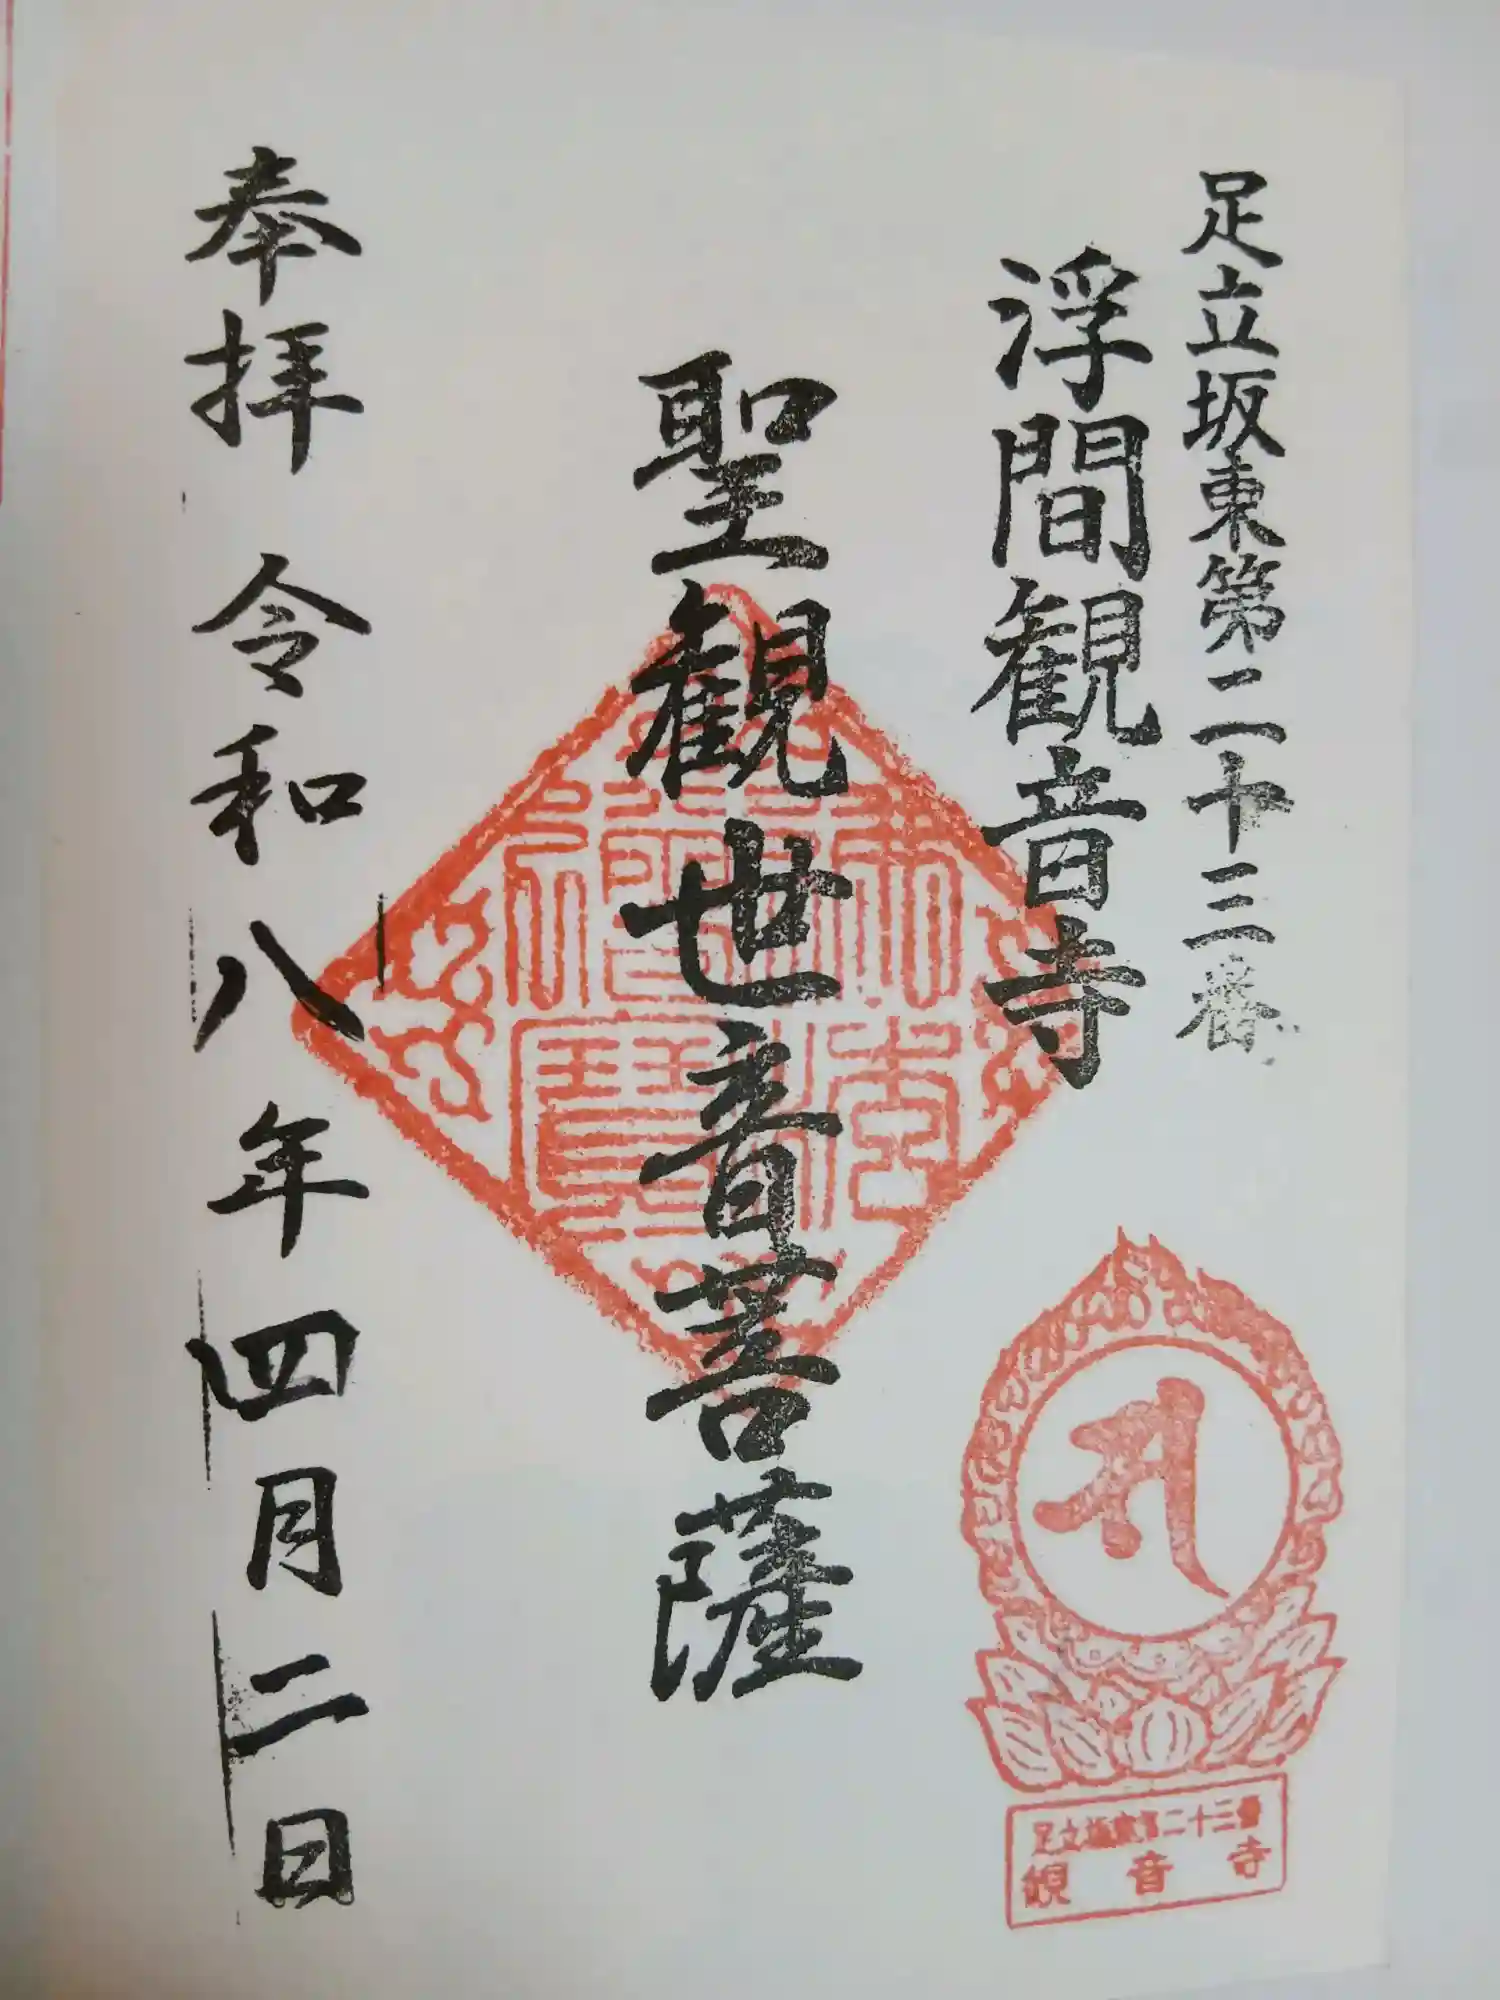 足立坂東第二十三番
浮間観音寺
聖観世音菩薩
奉拝 令和八年四月二日
佛法僧寳
足立坂東第二十三番
観音寺